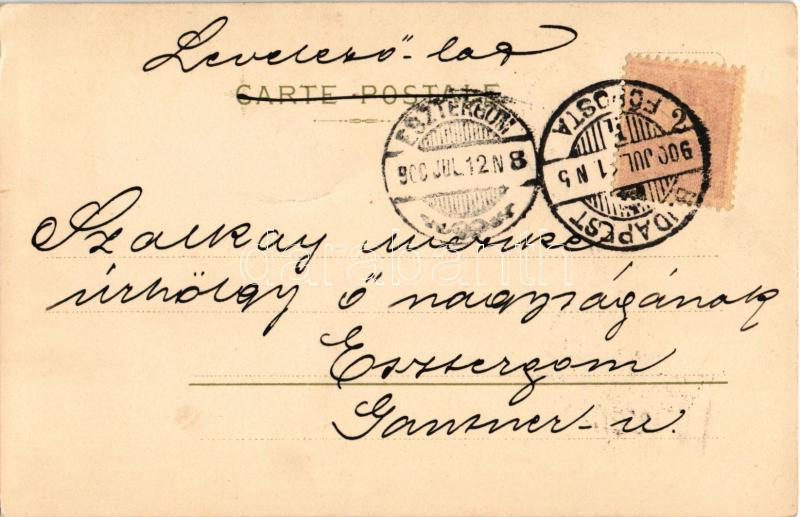 Levelező-lap
CARTE POSTALE
ESZTERGOM
900 JUL.12 N 8
BUDAPEST
900 JUL. 11 N 5
FŐPOSTA
Szalkay Merske
úrhölgy ő nagyságának
Esztergom
Gantner-u.
darabanth